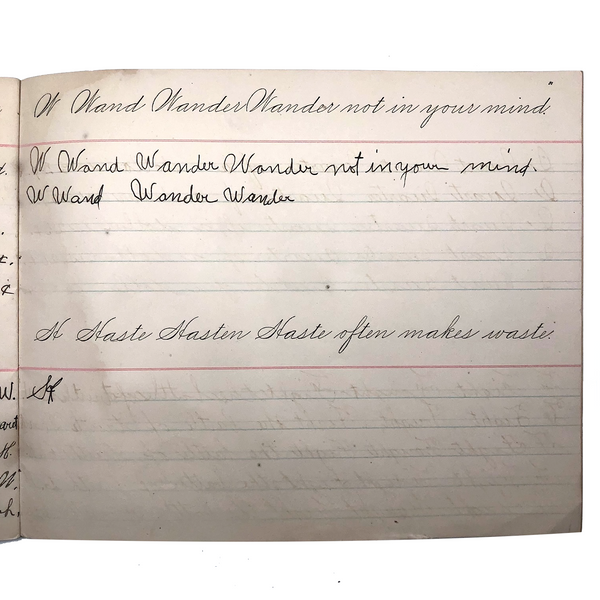 W Wand Wander Wander not in your mind.
W Wand Wander Wander not in your mind.
W Wand Wander Wander
H Haste Hasten Haste often makes waste.
H